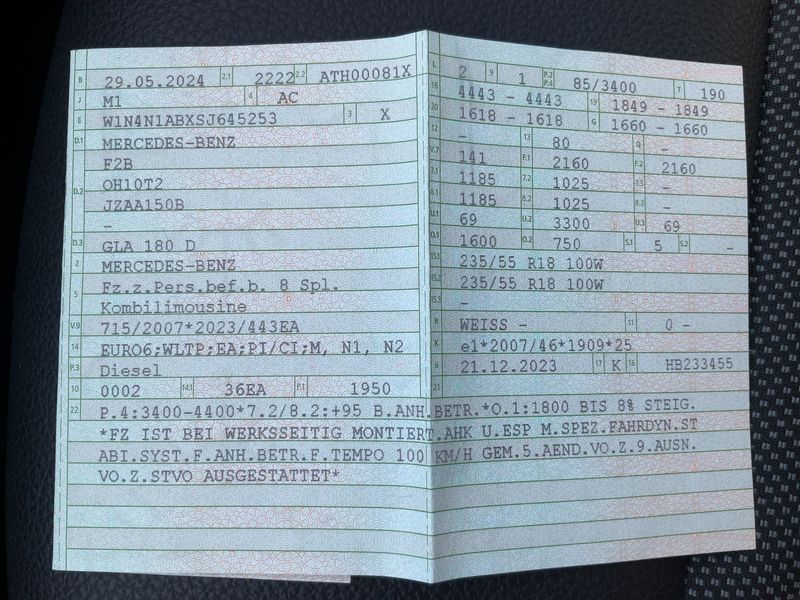 B 29.05.2024 2.1 2222 2.2 ATH00081X
J M1 4 AC
E W1N4N1ABXSJ645253 3 X
D.1 MERCEDES-BENZ
F2B
D.2 OH10T2
JZAA150B
-
D.3 GLA 180 D
2 MERCEDES-BENZ
5 Fz.z.Pers.bef.b. 8 Spl.
Kombilimousine
V.9 715/2007*2023/443EA
14 EURO6;WLTP;EA;PI/CI;M, N1, N2
P.3 Diesel
10 0002 14.1 36EA P.1 1950
L 2 9 1 P.2 P.4 85/3400 T 190
18 4443 - 4443 19 1849 - 1849
20 1618 - 1618 G 1660 - 1660
12 - 13 80 Q -
V.7 141 F.1 2160 F.2 2160
7.1 1185 7.2 1025 7.3 -
8.1 1185 8.2 1025 8.3 -
U.1 69 U.2 3300 U.3 69
O.1 1600 O.2 750 S.1 5 S.2 -
15.1 235/55 R18 100W
15.2 235/55 R18 100W
15.3 -
R WEISS - 11 0 -
K e1*2007/46*1909*25
6 21.12.2023 17 K 16 HB233455
21
22 P.4:3400-4400*7.2/8.2:+95 B.ANH.BETR.*O.1:1800 BIS 8% STEIG.
*FZ IST BEI WERKSSEITIG MONTIERT.AHK U.ESP M.SPEZ.FAHRDYN.ST
ABI.SYST.F.ANH.BETR.F.TEMPO 100 KM/H GEM.5.AEND.VO.Z.9.AUSN.
VO.Z.STVO AUSGESTATTET*